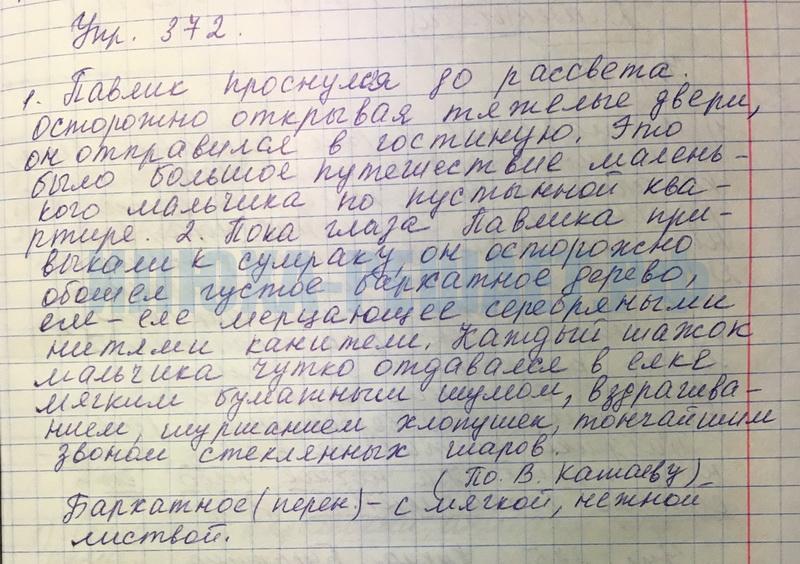 Упр. 372.
1. Павлик проснулся до рассвета.
осторожно открывая тяжелые двери,
он отправился в гостиную. Это
было большое путешествие малень-
кого мальчика по пустынной ква-
ртире. 2. Пока глаза Павлика при-
выкали к сумраку, он осторожно
обошел густое бархатное дерево,
еле-еле мерцающее серебряными
нитями канители. Каждый шажок
мальчика чутко отдавался в елке
мягким бумажным шумом, вздрагива-
нием, шуршанием хлопушек, тончайшим
звоном стеклянных шаров.
(По В. Катаеву)
Бархатное (перен.) - с мягкой, нежной
листвой.